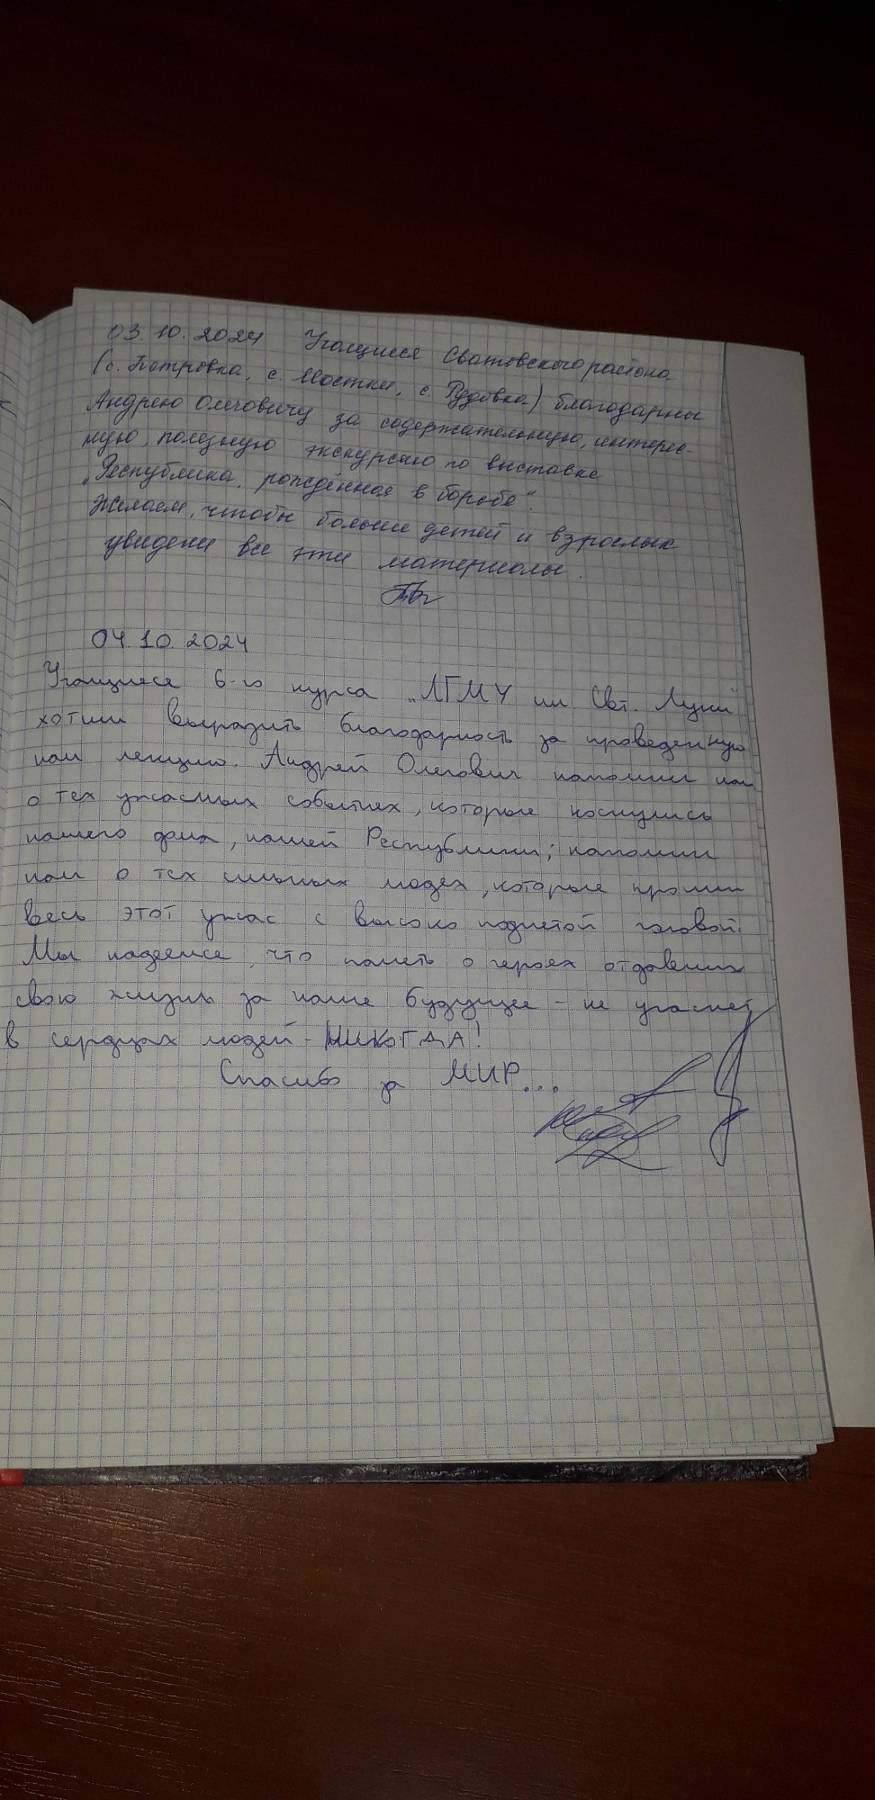 03.10.2024 Учащиеся Сватовского района
(с. Петровка, с. Мостки, с. Рудовка) благодарны
Андрею Олеговичу за содержательную, интерес-
ную, полезную экскурсию по выставке
„Республика, рождённая в борьбе".
Желаем, чтобы больше детей и взрослых
увидели все эти материалы.
04.10.2024
Учащиеся 6-го курса „ЛГМУ им. Свт. Луки"
хотим выразить благодарность за проведенную
нам лекцию. Андрей Олегович напомнил нам
о тех ужасных событиях, которые коснулись
нашего края, нашей Республики; напомнил
нам о тех сильных людях, которые прошли
весь этот ужас с высоко поднятой головой.
Мы надеемся, что память о героях отдавших
свою жизнь за наше будущее – не угаснет
в сердцах людей – НИКОГДА!
Спасибо за МИР...